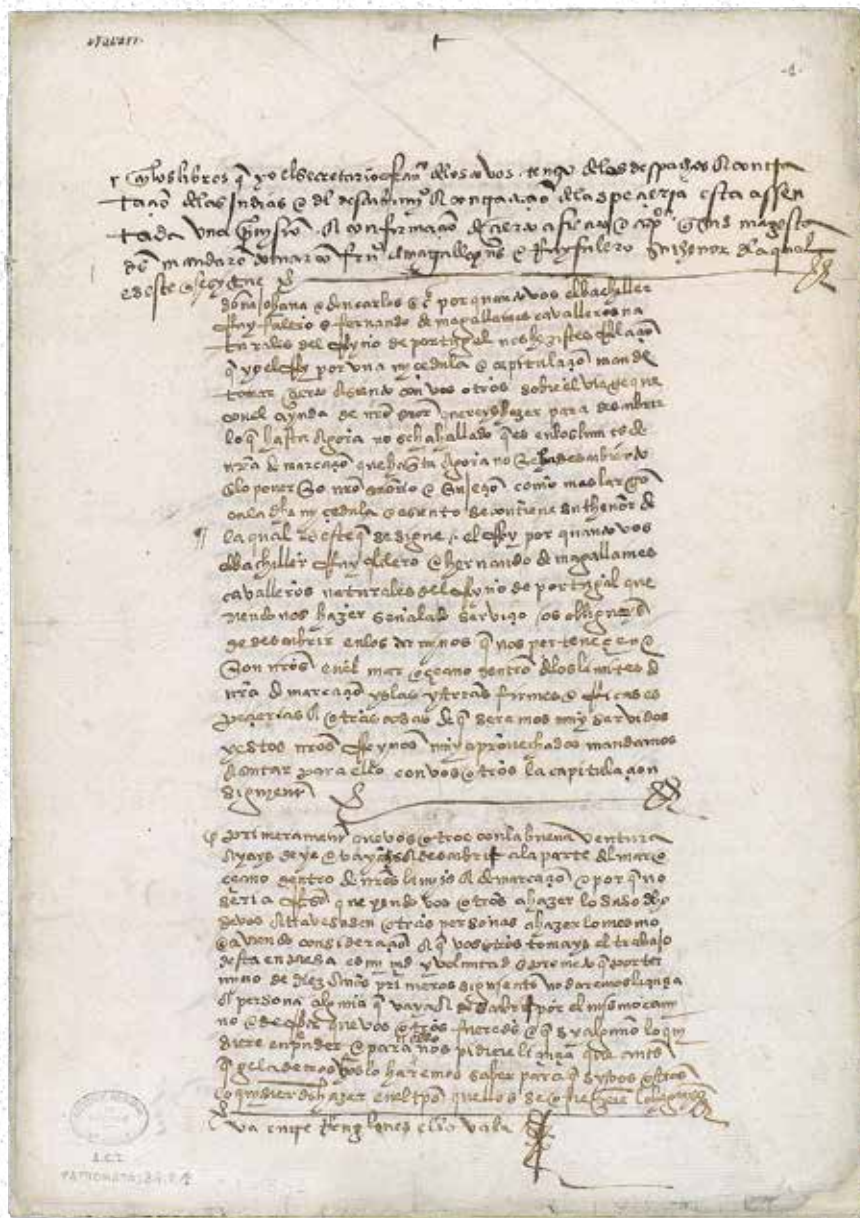 -1-
en los libros q yo el secretario franco delos covos tengo delos despachos
tacio delas yndias e del descubrimyo dela especeria esta assen
tada una provysio confirmacio de cierto asiento e capo q sus magesta
des mandaro tomar co frno de magallayns e Ruy falero su thenor dela qual
es este q se sygue
doña johana e don carlos &c por quanto vos el bachiller
Ruy falero e fernando de magallanes cavalleros na
turales del Reyno de portugal nos hezistes Relacio
q yo el Rey por una my cedula e capitulacio mande
tomar cierto asiento con vos otros sobre el viaje que
con el ayuda de nro señor quereys hazer para descubrir
lo q hasta agora no se ha hallado q es en los limites de
nra demarcacio que hasta agora no se ha descubierto
e lo poner so nro señorio e sujecio como mas largo
en la dha my cedula e asiento se contiene su thenor de
la qual es este q se sigue el Rey por quanto vos
el bachiller Ruy falero e hernando de magallanes
cavalleros naturales del Reyno de portugal que
riendo nos hazer señalado servicio os obligays
de descubrir en los terminos q nos pertenecen e
son nros en el mar oceano dentro delos limites de
nra demarcacio yslas y tierras firmes e Ricas es
pecerias e otras cosas de q seremos muy servidos
y estos nros Reynos muy aprovechados mandamos
asentar para ello con vos otros la capitulacion
siguient
primeramente que vos otros con la buena ventura
ayays de yr e vayays a descubrir a la parte del mar o
ceano dentro de nros limites e demarcacio e por q no
seria Razo que yendo vos otros a hazer lo suso dho
se vos atravesasen otras personas a hazer lo mesmo
e aviendo consideracio a q vos otros tomays el trabajo
desta enpresa es mi md y voluntad e prometo q por ter
mino de diez años primeros siguientes no daremos licencia
a persona alguna q vaya a descubrir por el mismo cami
no e derrota que vos otros fueredes e q sy alguno lo qui
siere enprender e para ello nos pidiere licencia que antes
q gela demos vos lo haremos saber para q sy vos otros
lo quisierdes hazer en el tpo quellos se ofrecieren lo hagays
va entre Renglones ello vala
A.G.I.
PATRONATO, 34, R. 1